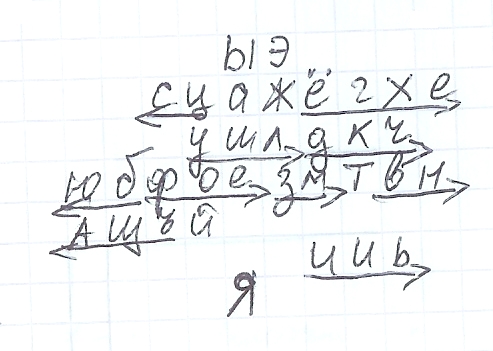 ЫЭ
сцажёгхе
ушл дкч
юбфоезмтвн
ащъй
ииь
Я